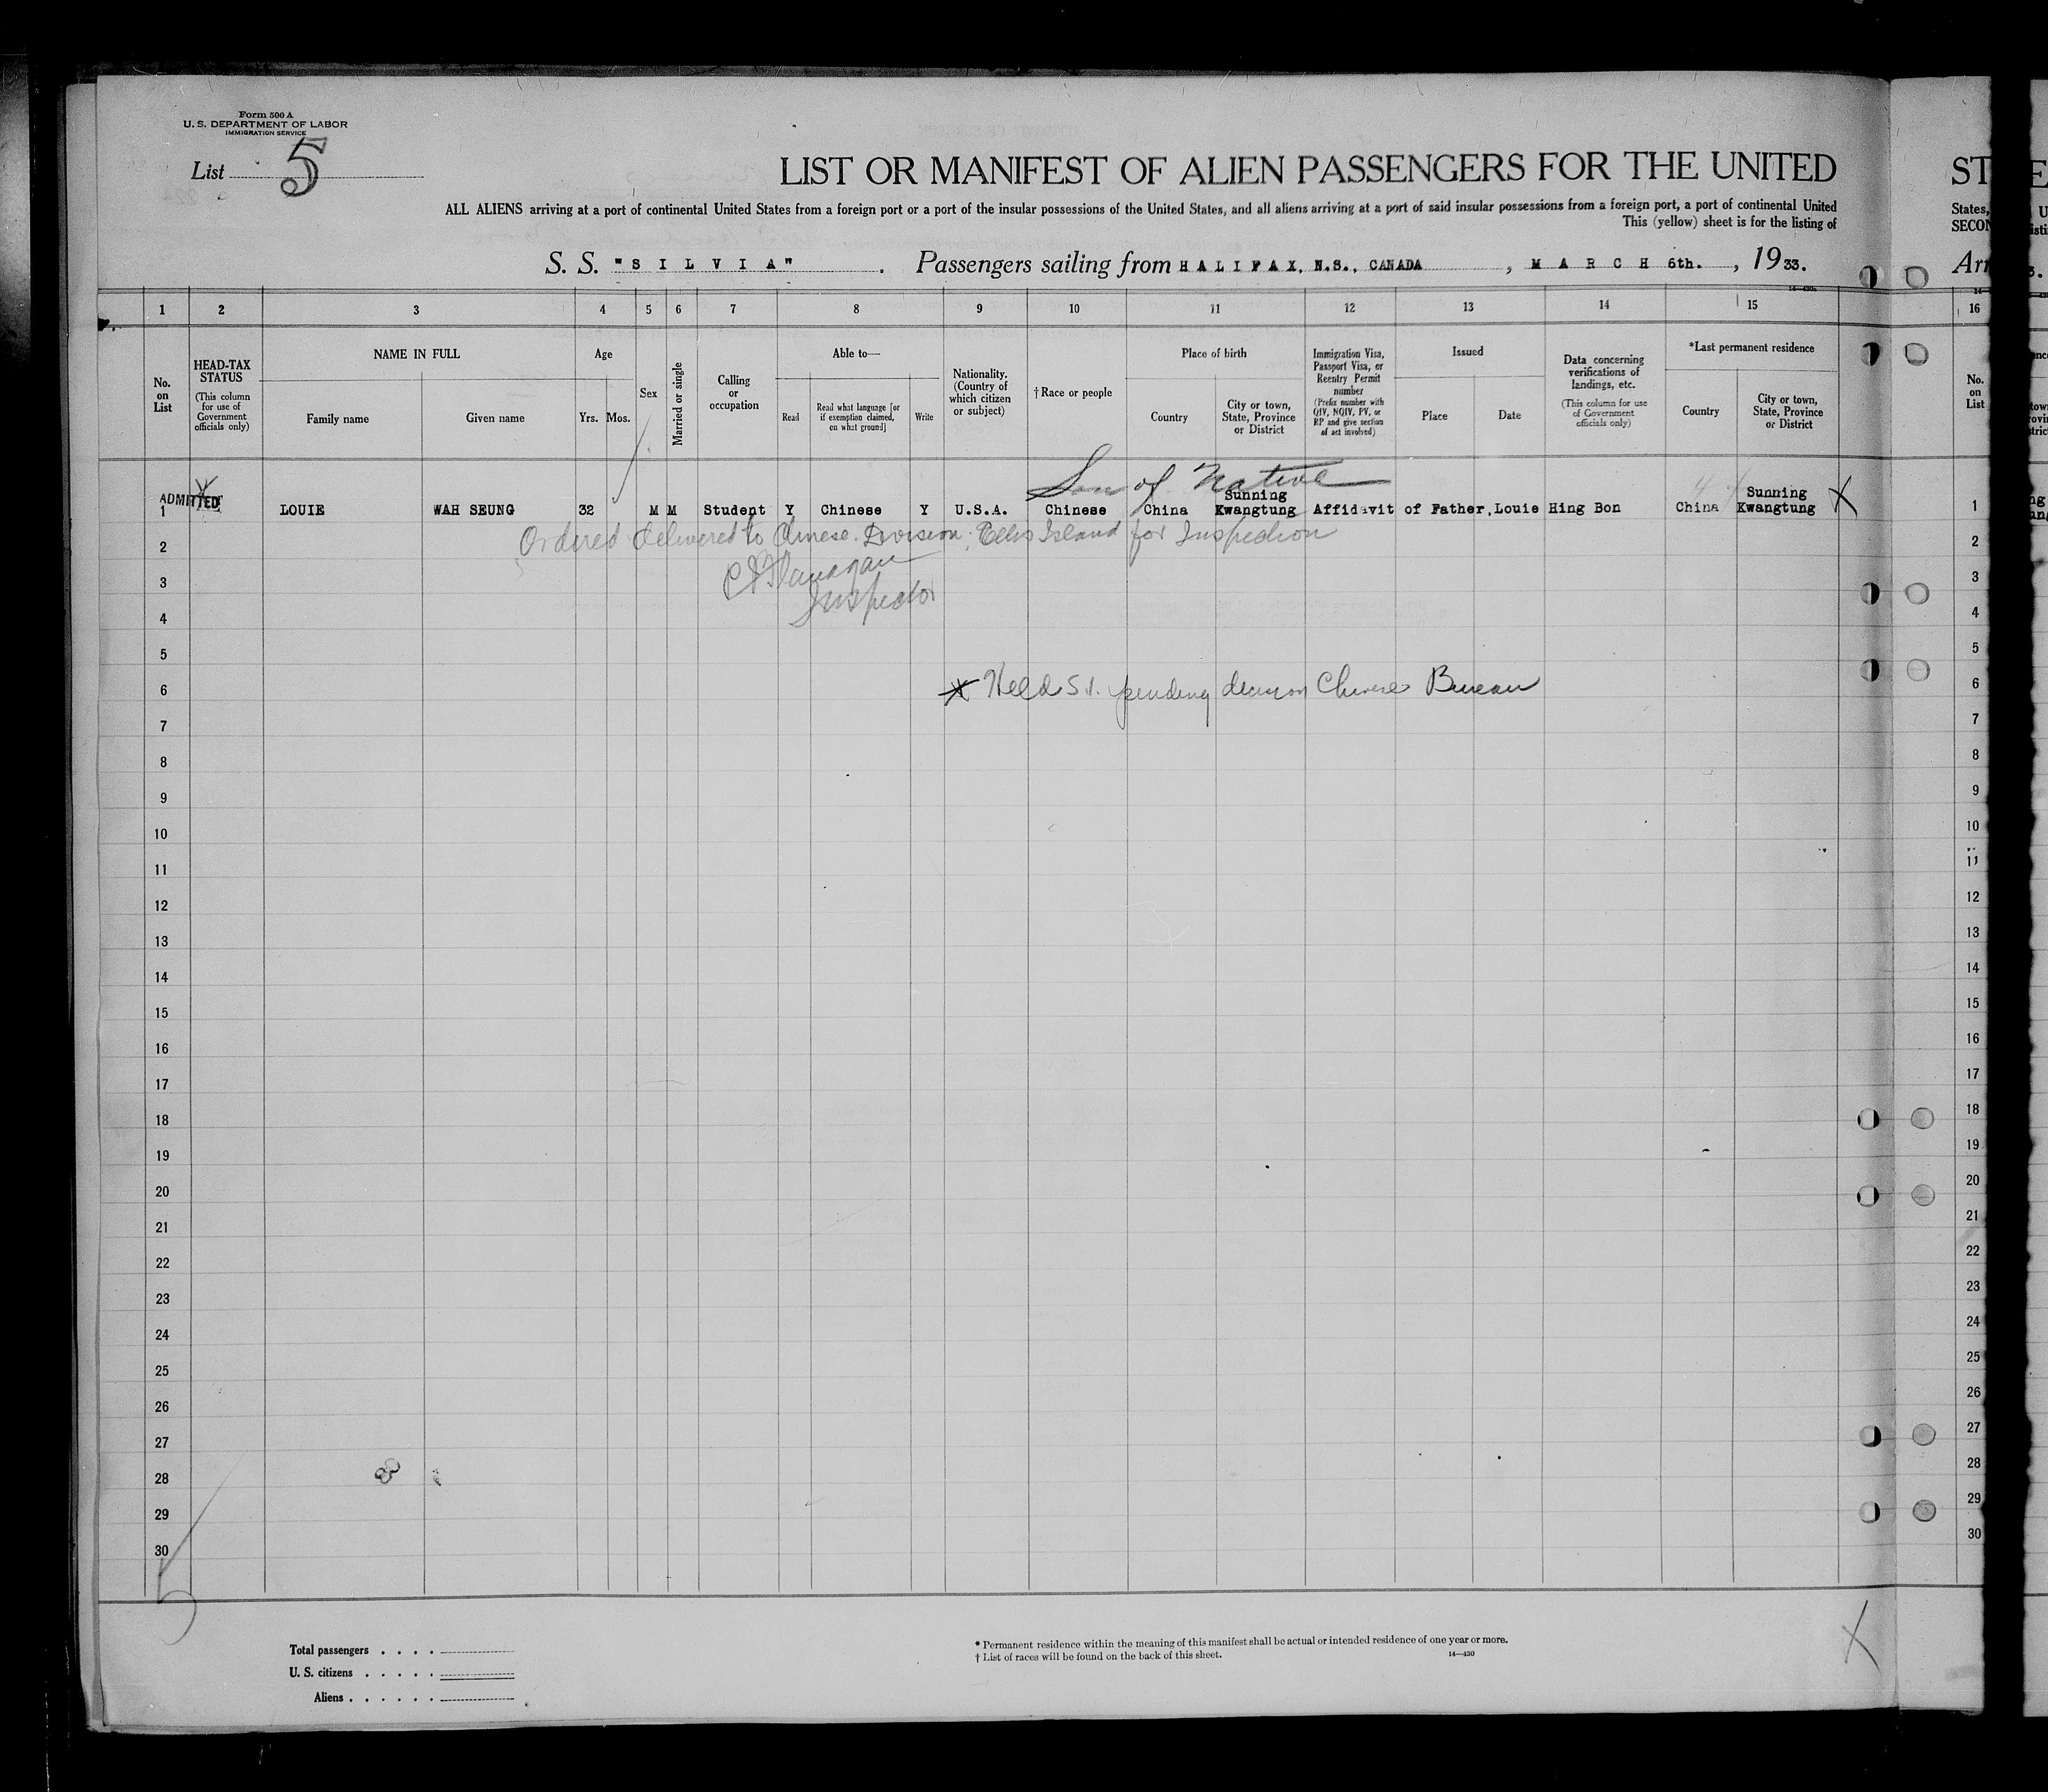 Form 500 A
U. S. DEPARTMENT OF LABOR
IMMIGRATION SERVICE
List 5
LIST OR MANIFEST OF ALIEN PASSENGERS FOR THE UNITED
ALL ALIENS arriving at a port of continental United States from a foreign port or a port of the insular possessions of the United States, and all aliens arriving at a port of said insular possessions from a foreign port, a port of continental United
This (yellow) sheet is for the listing of
S. S. "SILVIA". Passengers sailing from HALIFAX, N.S., CANADA, MARCH 6th., 1933.
1 2 3 4 5 6 7 8 9 10 11 12 13 14 15
No. on List
HEAD-TAX STATUS (This column for use of Government officials only)
NAME IN FULL
Family name
Given name
Age
Yrs. Mos.
Sex
Married or single
Calling or occupation
Able to—
Read
Read what language [or if exemption claimed, on what ground]
Write
Nationality. (Country of which citizen or subject)
† Race or people
Place of birth
Country
City or town, State, Province or District
Immigration Visa, Passport Visa, or Reentry Permit number (Prefix number with QIV, NQIV, PV, or RP and give section of act involved)
Issued
Place
Date
Data concerning verifications of landings, etc. (This column for use of Government officials only)
*Last permanent residence
Country
City or town, State, Province or District
Son of Native
ADMITTED
1 LOUIE WAH SEUNG 32 M M Student Y Chinese Y U.S.A. Chinese China Sunning Kwangtung Affidavit of Father, Louie Hing Bon China Sunning Kwangtung X
2 Ordered delivered to Chinese Division, Ellis Island for Inspection
3 Flanagan
4 Inspector
5
6 X Held S.I. pending decision Chinese Bureau
7
8
9
10
11
12
13
14
15
16
17
18
19
20
21
22
23
24
25
26
27
28
29
30
Total passengers . . . .
U. S. citizens . . . . .
Aliens . . . . . .
* Permanent residence within the meaning of this manifest shall be actual or intended residence of one year or more.
† List of races will be found on the back of this sheet.
14—430
ST
States,
SECON
Arr
16
No. on List
1
2
3
4
5
6
7
8
9
10
11
12
13
14
15
16
17
18
19
20
21
22
23
24
25
26
27
28
29
30